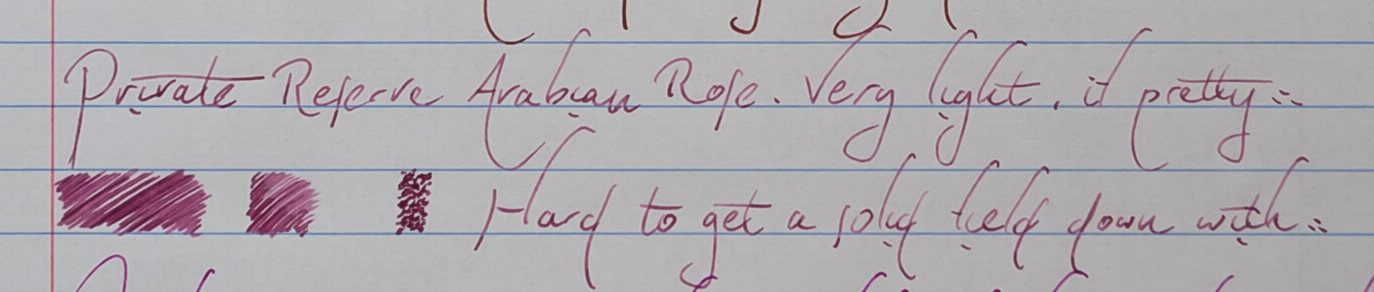 Private Reserve Arabian Rose. Very light, if pretty:
Hard to get a solid field down with: